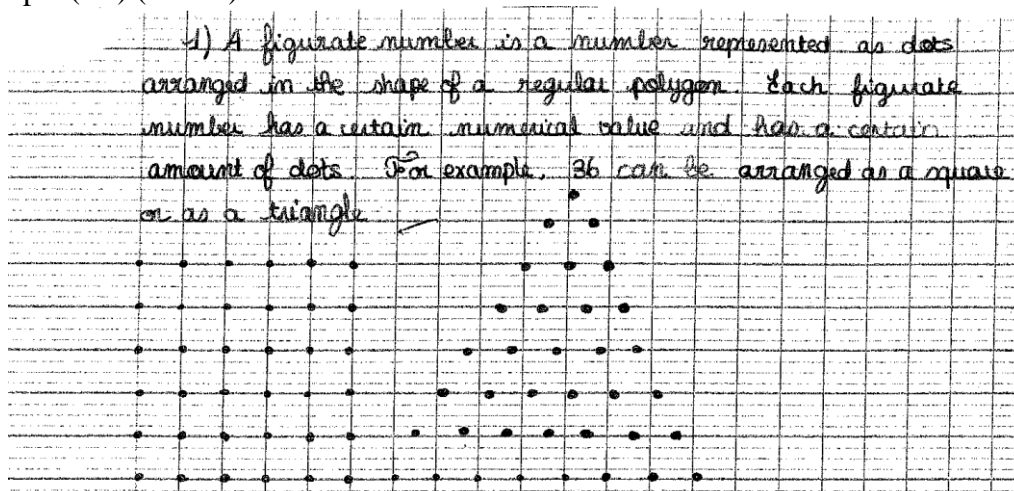 1) A figurate number is a number represented as dots
arranged in the shape of a regular polygon. Each figurate
number has a certain numerical value and has a certain
amount of dots. For example, 36 can be arranged as a square
or as a triangle